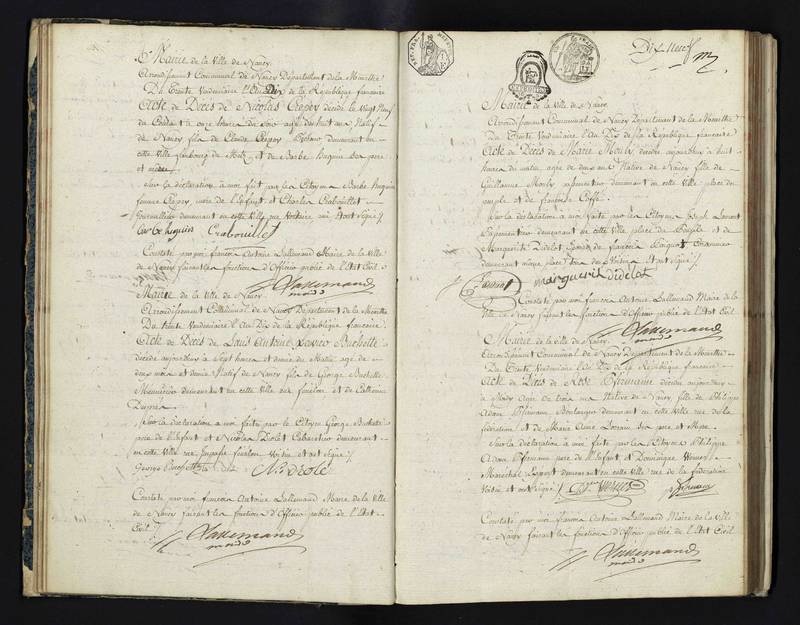 Mairie de la Ville de Nancy.
Arrondissement Communal de Nancy Département de la Meurthe
Du Trente Vendemiaire l'An Dix de la République francaise
Acte de Décès de Nicolas Crepey décédé le Vingt Neuf
du Courant à onze heures du soir agé de huit ans Natif
de Nancy fils de Claude Crepey demeurant en
cette ville faubourg de Metz, et de Barbe huguin ses père
et mère
Sur la déclaration à moi fait par les Citoyens Barbe huguin
femme Crepey, mère de l'Enfant et Charles Crabouillet
Journallier demeurant en cette Ville rue Notaire qui ont signé /
barbe huguin Crabouillet
Constaté par moi françois Antoine Lallemand Maire de la Ville
de Nancy faisant les fonctions d'Officier public de l'Etat Civil
Lallemand
maire
Mairie de la Ville de Nancy.
Arrondissement Communal de Nancy Département de la Meurthe
Du trente Vendemiaire l'An Dix de la République francaise
Acte de Décès de Louis Antoine Buchette
décédé aujourdhuy à Sept heures et demie du Matin agé de
deux mois et demie Natif de Nancy fils de George Buchette
Menuisier demeurant en cette Ville rue fénelon et de Catherine
Dupréz
Sur la déclaration à moi faite par les Citoyens George Buchette
père de l'Enfant et Nicolas Drolet Cabaretier demeurant
en cette Ville rue fénélon Voisin et ont signé /
George Buchette N. Drolet
Constaté par moi françois Antoine Lallemand Maire de la Ville
de Nancy faisant les fonctions d'Officier public de l'Etat
Civil
Lallemand
maire
Dix Neuf
Mairie de la Ville de Nancy.
Arrondissement Communal de Nancy Département de la Meurthe
Du Trente Vendemiaire l'An Dix de la République francaise
Acte de Décès de Marie Mouly décédée aujourdhuy à huit
heures du matin agée de deux ans Native de Nancy fille de
Guillaume Mouly demeurant en cette Ville place du
peuple et de françoise
Sur la déclaration à moi faite par les Citoyens Joseph Laurent
demeurant en cette Ville place du Peuple et de
Marguerite Didelot femme de françois
demeurant même place Voisins et ont signé /
Laurent marguerit didelot
Constaté par moi françois Antoine Lallemand Maire de la
Ville de Nancy faisant les fonctions d'Officier public de l'Etat Civil
Lallemand
maire
Mairie de la Ville de Nancy.
Arrondissement Communal de Nancy Département de la Meurthe
Du Trente Vendemiaire l'An Dix de la République francaise
Acte de Décès de Rose décédée aujourdhuy
à Midy Agée de trois ans Native de Nancy fille de Philippe
Adam Boulanger demeurant en cette Ville rue de la
fédération et de Marie Anne Lorrain ses père et Mère.
Sur la déclaration à moi faite par les Citoyens Philippe
Adam père de l'Enfant et Dominique
Maréchal Expert demeurant en cette Ville rue de la fédération
Voisin et ont signé /
Constaté par moi françois Antoine Lallemand Maire de la Ville
de Nancy faisant les fonctions d'Officier public de l'Etat Civil
Lallemand
maire